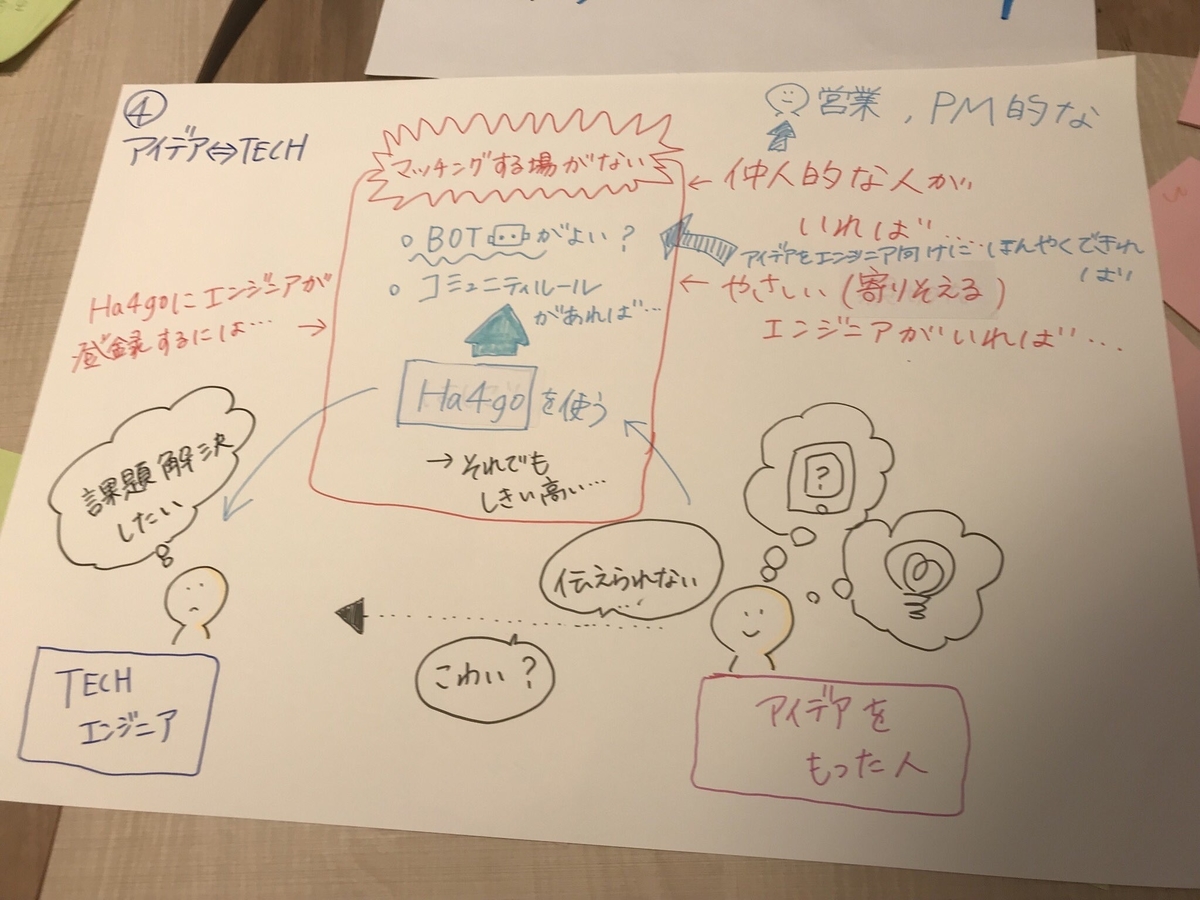 ④
アイデア⇔TECH
営業，PM的な
マッチングする場がない
← 仲人的な人が
いれば…
○ BOT がよい？
アイデアをエンジニア向けに…ほんやくできれ
ば
○ コミュニティルール
があれば…
← やさしい（寄りそえる）
エンジニアがいれば…
Ha4goにエンジニアが
登録するには… →
Ha4go を使う
→ それでも
しきい高い…
課題解決
したい
?
伝えられない
…
こわい？
TECH
エンジニア
アイデアを
もった人